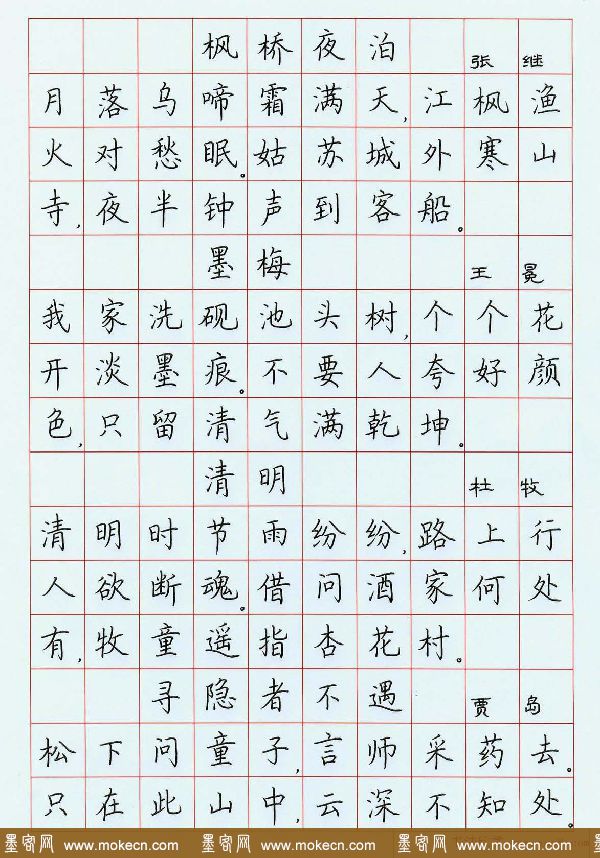 枫桥夜泊 张继
月落乌啼霜满天,江枫渔
火对愁眠。姑苏城外寒山
寺,夜半钟声到客船。
墨梅 王冕
我家洗砚池头树,个个花
开淡墨痕。不要人夸好颜
色,只留清气满乾坤。
清明 杜牧
清明时节雨纷纷,路上行
人欲断魂。借问酒家何处
有,牧童遥指杏花村。
寻隐者不遇 贾岛
松下问童子,言师采药去。
只在此山中,云深不知处。
墨客网 www.mokecn.com 墨客网 www.mokecn.com 墨客网 www.mokecn.com